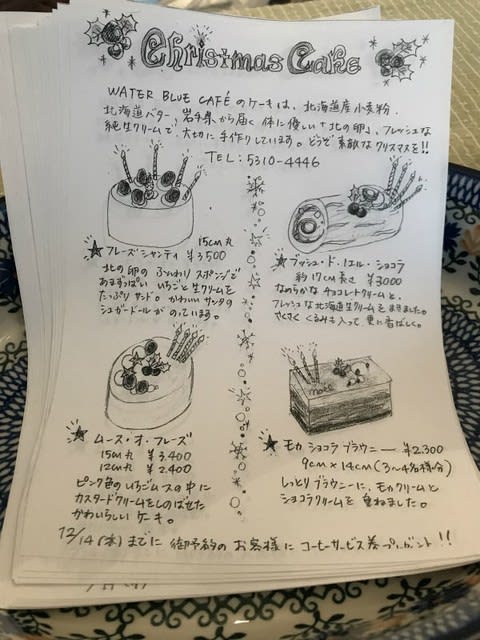 Christmas Cake
WATER BLUE CAFÉ のケーキは、北海道産小麦粉、
北海道バター、岩手県から届く体に優しい「北の卵」、フレッシュな
純生クリームで、大切に手作りしています。どうぞ素敵なクリスマスを!!
TEL: 5310-4446
★ フレーズシャンティ 15cm丸 ¥3500
北の卵のふんわりスポンジで
あまずっぱいいちごと生クリームを
たっぷりサンド。かわいいサンタの
シュガードールがのっています。
★ ブッシュ・ド・ノエル・ショコラ
約17cm長さ ¥3000
なめらかなチョコレートクリームと、
フレッシュな北海道生クリームをまきました。
さくさくくるみも入って、更に香ばしく。
★ ムース・オ・フレーズ
15cm丸 ¥3.400
12cm丸 ¥2.400
ピンク色のいちごムースの中に
カスタードクリームをしのばせた
かわいらしいケーキ。
★ モカショコラブラウニー ― ¥2.300
9cm×14cm(3〜4名様分)
しっとりブラウニーに、モカクリームと
ショコラクリームを重ねました。
12/14(木)までに御予約のお客様にコーヒーサービス券プレゼント!!